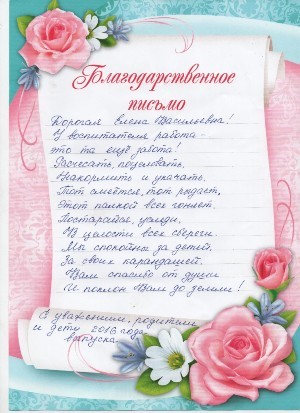 Благодарственное
письмо
Дорогая Елена Васильевна!
У воспитателя работа –
это та ещё забота!
Расчесать, поцеловать,
Накормить и укачать.
Тот смеётся, тот рыдает,
Этот палкой всех гоняет.
Постарайся, успеди,
В целости всех сбереги.
Мы спокойны за детей,
За своих карандашей.
Вам спасибо от души
И поклон Вам до земли!
С уважением, родители
и дети 2016 года
выпуска.